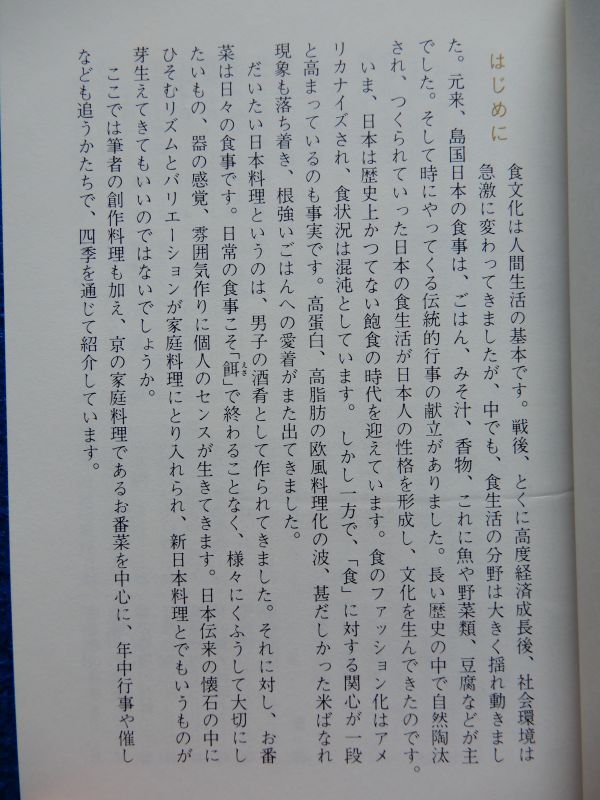 はじめに
食文化は人間生活の基本です。戦後、とくに高度経済成長後、社会環境は
急激に変わってきましたが、中でも、食生活の分野は大きく揺れ動きまし
た。元来、島国日本の食事は、ごはん、みそ汁、香物、これに魚や野菜類、豆腐などが主
でした。そして時にやってくる伝統的行事の献立がありました。長い歴史の中で自然陶汰
され、つくられていった日本の食生活が日本人の性格を形成し、文化を生んできたのです。
いま、日本は歴史上かつてない飽食の時代を迎えています。食のファッション化はアメ
リカナイズされ、食状況は混沌としています。しかし一方で、「食」に対する関心が一段
と高まっているのも事実です。高蛋白、高脂肪の欧風料理化の波、甚だしかった米ばなれ
現象も落ち着き、根強いごはんへの愛着がまた出てきました。
だいたい日本料理というのは、男子の酒肴として作られてきました。それに対し、お番
菜は日々の食事です。日常の食事こそ「餌えさ」で終わることなく、様々にくふうして大切にし
たいもの、器の感覚、雰囲気作りに個人のセンスが生きてきます。日本伝来の懐石の中に
ひそむリズムとバリエーションが家庭料理にとり入れられ、新日本料理とでもいうものが
芽生えてきてもいいのではないでしょうか。
ここでは筆者の創作料理も加え、京の家庭料理であるお番菜を中心に、年中行事や催し
なども追うかたちで、四季を通じて紹介しています。